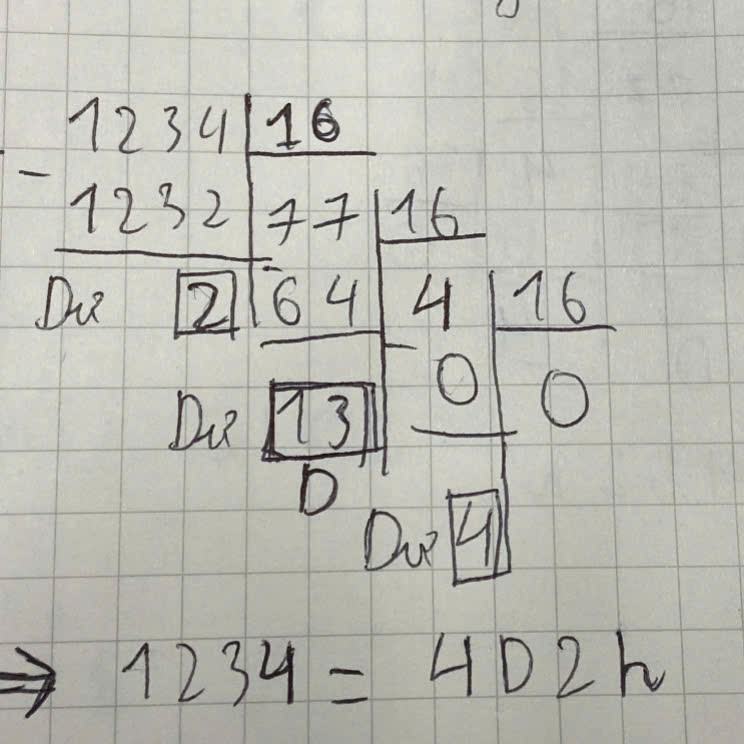 1234 16
- 1232 77 16
Dư 2 64 4 16
Dư 13 0 0
D
Dư 4
⇒ 1234 = 4D2h